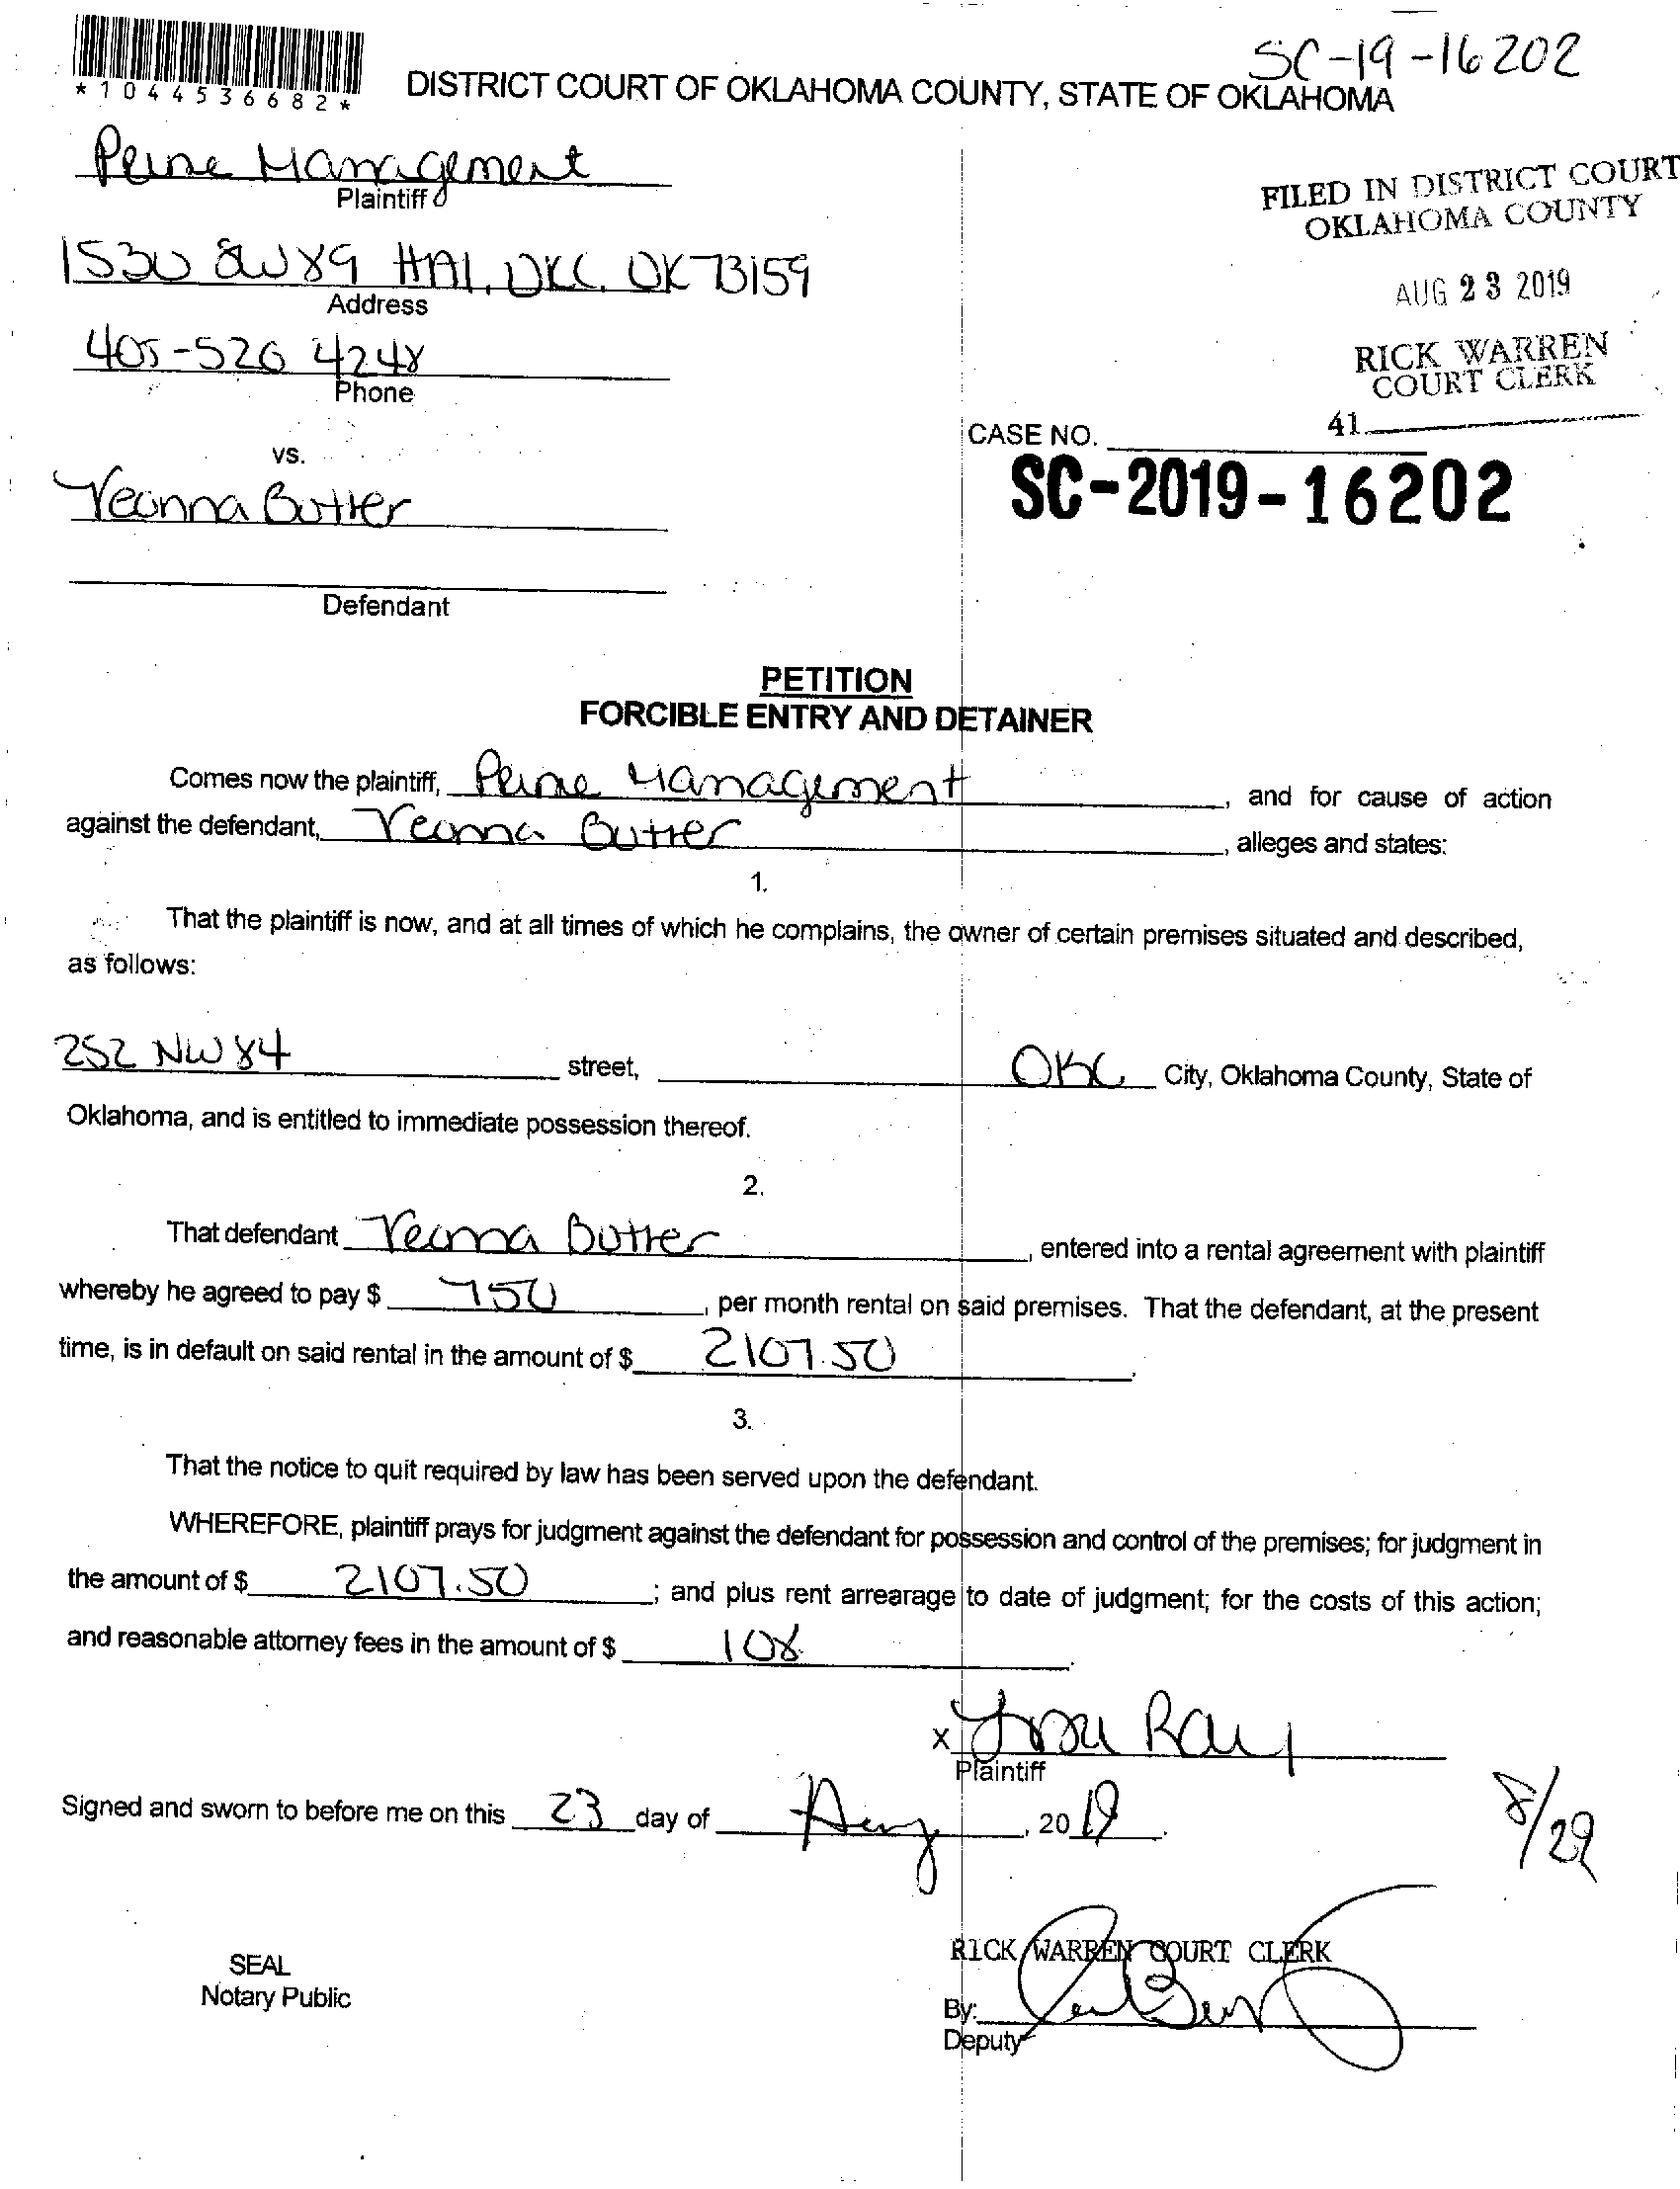 SC-19-16202
*1044536682*
DISTRICT COURT OF OKLAHOMA COUNTY, STATE OF OKLAHOMA
Management
Plaintiff
1530 SW 89 #A1, OKC, OK 73159
Address
405-526 4248
Phone
FILED IN DISTRICT COURT
OKLAHOMA COUNTY
AUG 23 2019
RICK WARREN
COURT CLERK
41
CASE NO.
SC-2019-16202
vs.
Butter
Defendant
PETITION
FORCIBLE ENTRY AND DETAINER
Comes now the plaintiff, Management, and for cause of action
against the defendant, Butter, alleges and states:
1.
That the plaintiff is now, and at all times of which he complains, the owner of certain premises situated and described,
as follows:
252 NW 84 street, OKC City, Oklahoma County, State of
Oklahoma, and is entitled to immediate possession thereof.
2.
That defendant Butter, entered into a rental agreement with plaintiff
whereby he agreed to pay $ 750, per month rental on said premises. That the defendant, at the present
time, is in default on said rental in the amount of $ 2107.50.
3.
That the notice to quit required by law has been served upon the defendant.
WHEREFORE, plaintiff prays for judgment against the defendant for possession and control of the premises; for judgment in
the amount of $ 2107.50; and plus rent arrearage to date of judgment; for the costs of this action;
and reasonable attorney fees in the amount of $ 108.
x Ray
Plaintiff
Signed and sworn to before me on this 23 day of Aug, 2019.
8/29
SEAL
Notary Public
RICK WARREN COURT CLERK
By:
Deputy